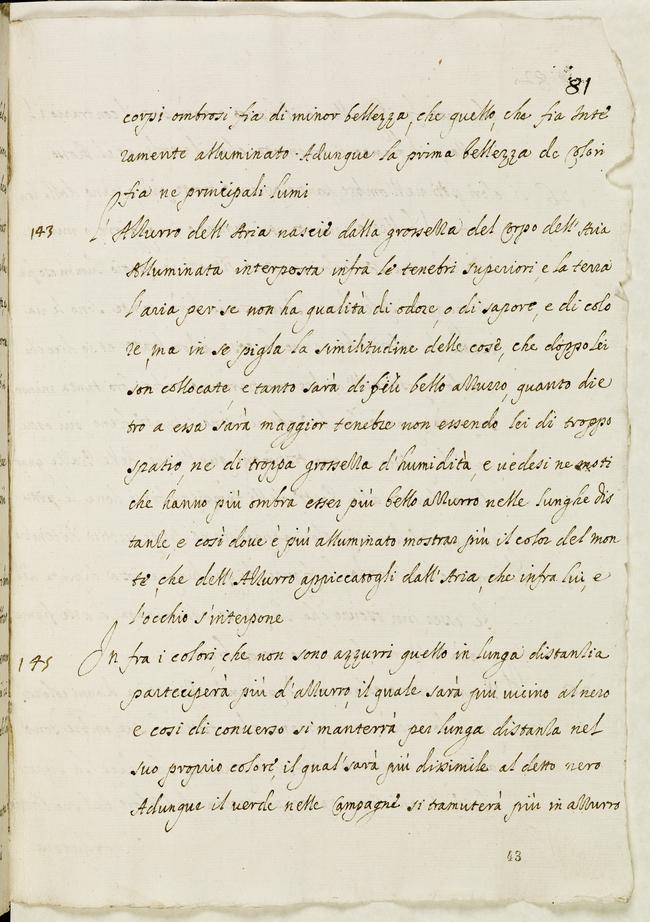 81
corpi ombrosi fia di minor bellezza, che quello, che fia Inte
ramente alluminato. Adunque la prima bellezza de Colori
fia ne principali lumi
143 L'Azzurro dell'Aria nascie dalla grossezza del Corpo dell'Aria
Alluminata interposta infra le tenebri superiori, e la terra
l'aria per se non ha qualità di odore, o di sapore, e di colo
re, ma in se pigla la similitudine delle cose, che doppo lei
son collocate, e tanto sarà di più bello azzurro, quanto die
tro a essa sarà maggior tenebre non essendo lei di troppo
spatio, ne di troppa grossezza d'humidità, e vedesi ne moti
che hanno più ombra esser più bello azzurro nelle lunghe dis
tanze, e così dove è più alluminato mostrar più il color del mon
te, che dell'Azzurro appiccatogli dall'Aria, che infra lui, e
l'occhio s'interpone
145 In fra i colori, che non sono azzurri quello in lunga distantia
parteciperà più d'azzurro, il quale sarà più vicino al nero
e così di converso si manterrà per lunga distanza nel
suo proprio colore, il qual'sarà più dissimile al detto nero
Adunque il verde nelle Campagne si tramuterà più in azzurro
43